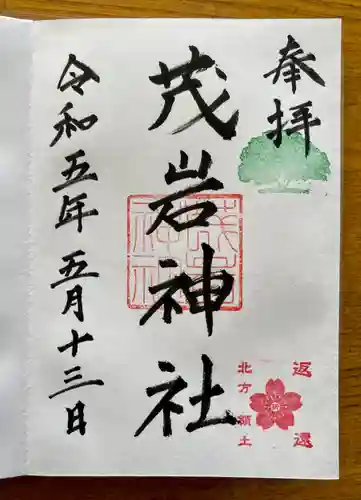 奉拝
茂岩神社
茂岩
神社
令和五年五月十三日
返還
北方領土